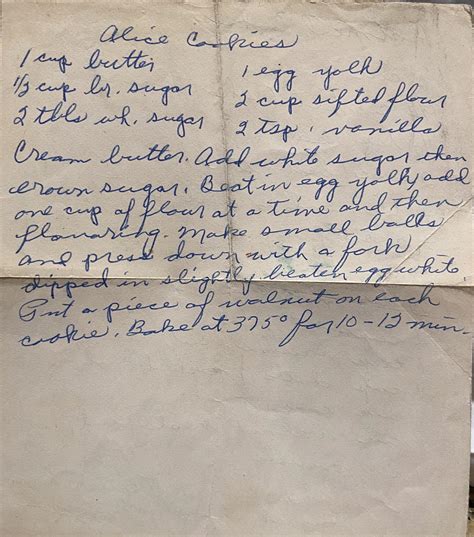 Alice Cookies
1 cup butter
1/2 cup br. sugar
2 tbls wh. sugar
1 egg yolk
2 cup sifted flour
2 tsp. vanilla
Cream butter. Add white sugar then
brown sugar. Beat in egg yolk add
one cup of flour at a time and then
flavoring. Make small balls
and press down with a fork
dipped in slightly beaten egg white.
Put a piece of walnut on each
cookie. Bake at 375° for 10-12 min.